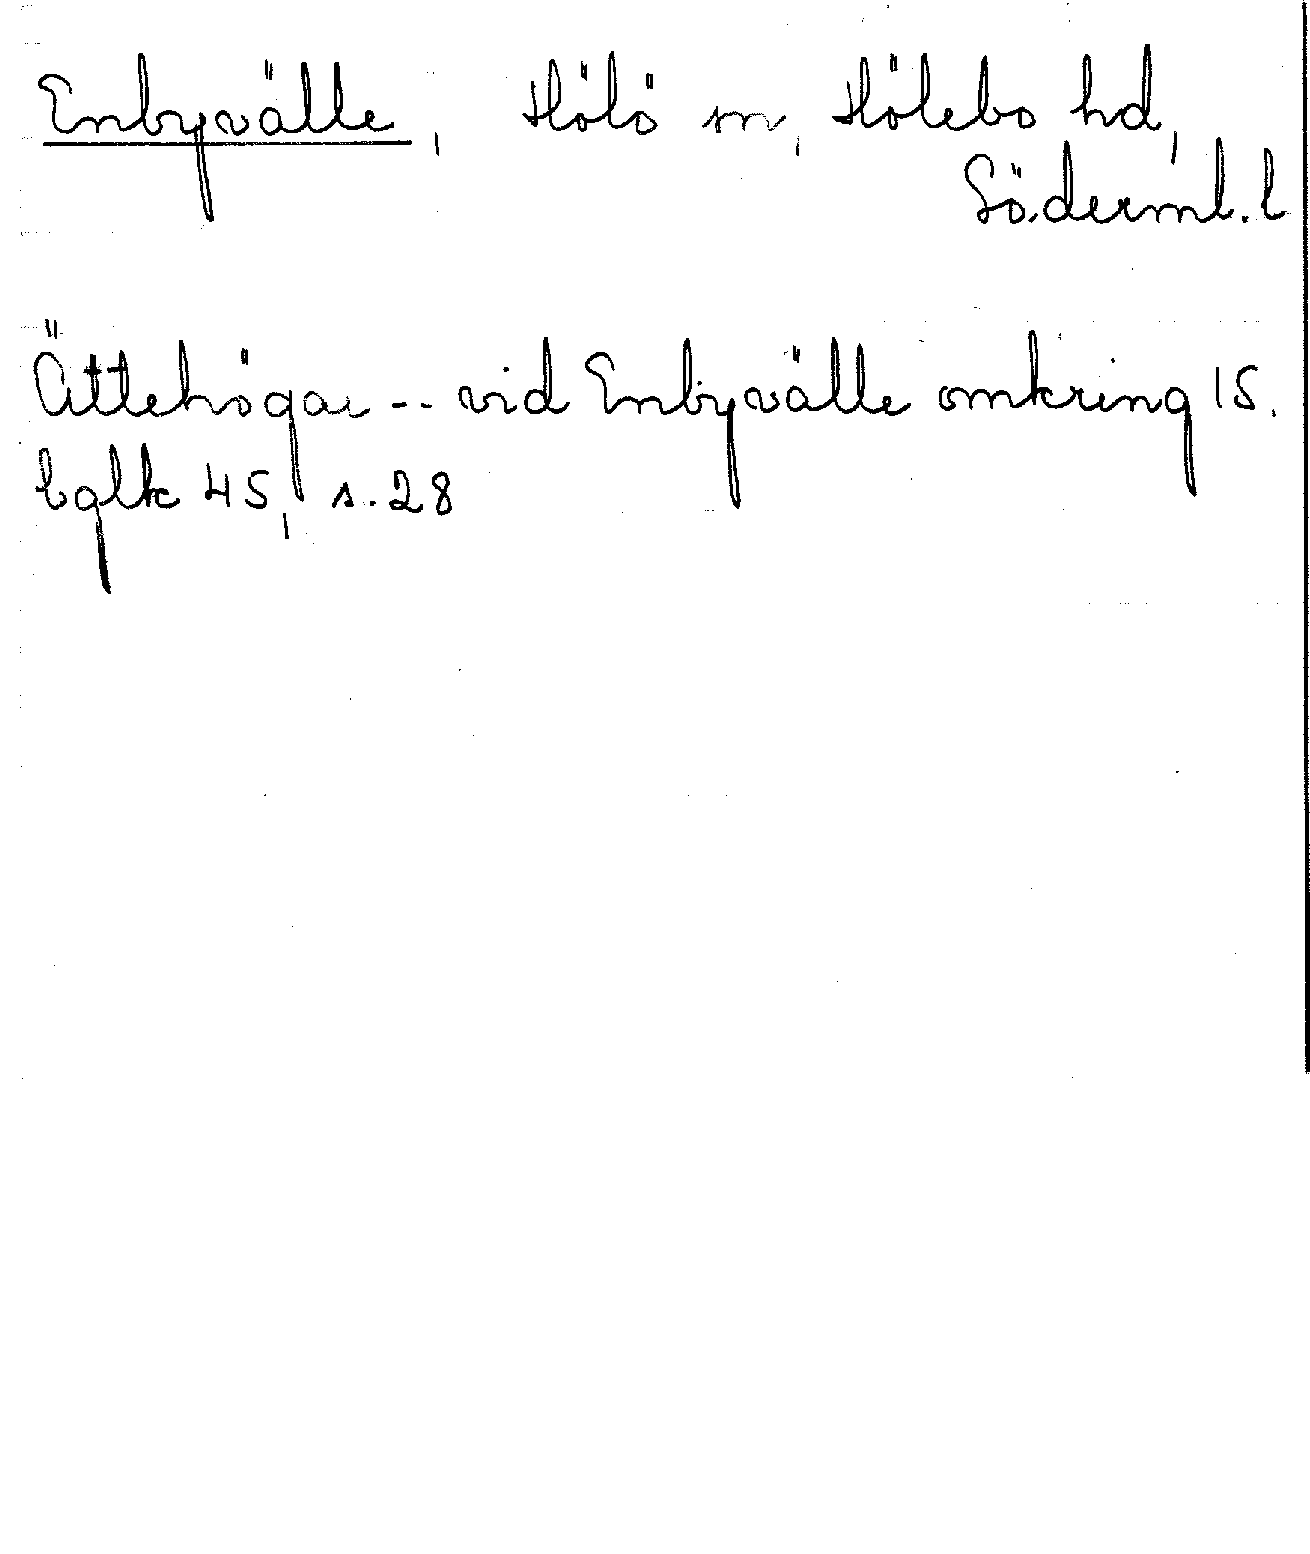 Enbyvälle, Hölö sn, Hölebo hd,
Söderml. l
Ättehögar -- vid Enbyvälle omkring 15.
bglk 45, s. 28